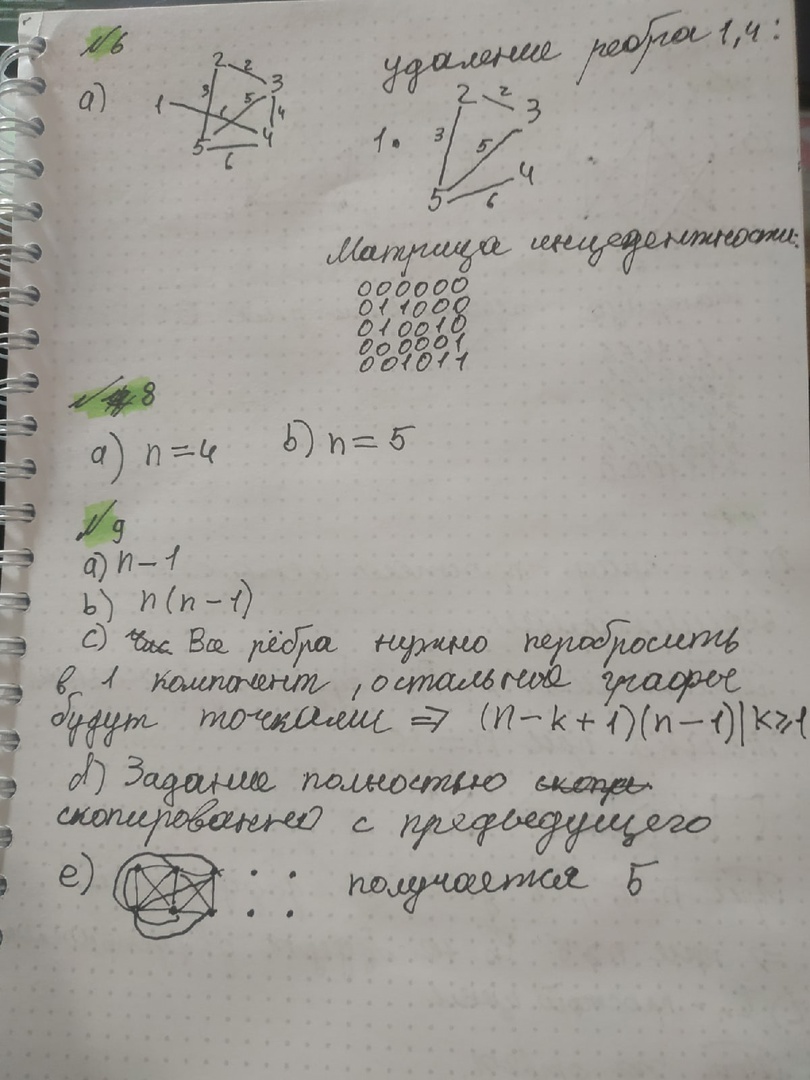 №6
удаление ребра 1,4:
а)
2 2 3
1 3 1 5 4
5 6 4
2 2 3
1. 3 5
5 6 4
Матрица инцедентности:
000000
011000
010010
000001
001011
№8
а) n=4 b) n=5
№9
а) n-1
b) n(n-1)
c) Все рёбра нужно перобросить
в 1 компонент, остальные графы
будут точками ⇒ (n-k+1)(n-1)|k⩾1
d) Задание полностью
скопированно с предыдущего
e) получается 5